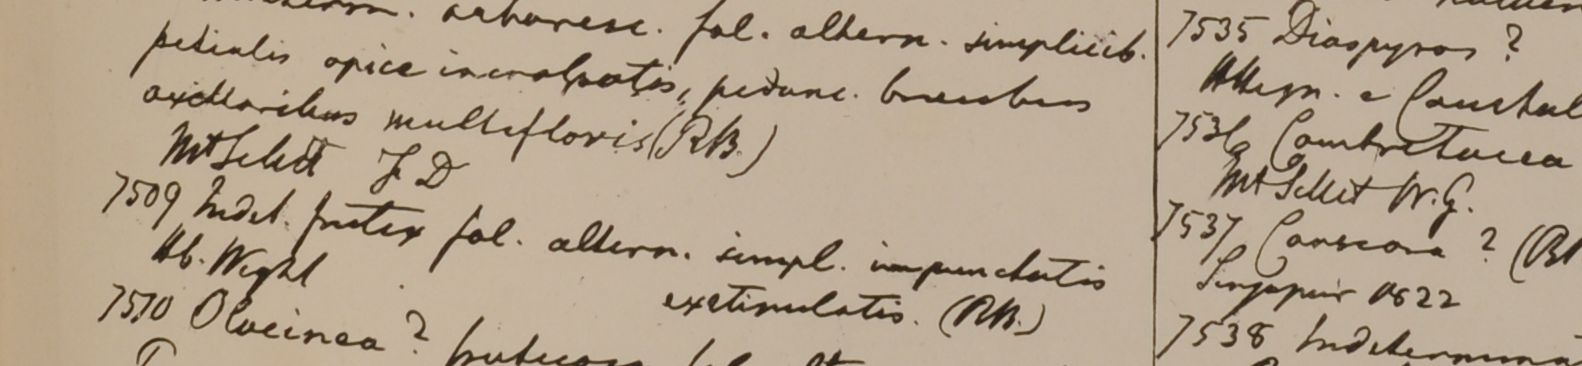 arboresc. fol. altern. simplicib.
petiolis apice incrassatis, pedunc. brevibus
axillaribus multifloris (RB.)
Mt Sillet F D
7509 Indet. frutex fol. altern. simpl. impunctatis
Hb. Wight
exstipulatis. (RB.)
7510 Olacinea? fruticosa
7535 Diospyros ?
7536 Combretacea
Mt Sillet W. G.
7537 Canscora ? (Br
Singapur 1822
7538